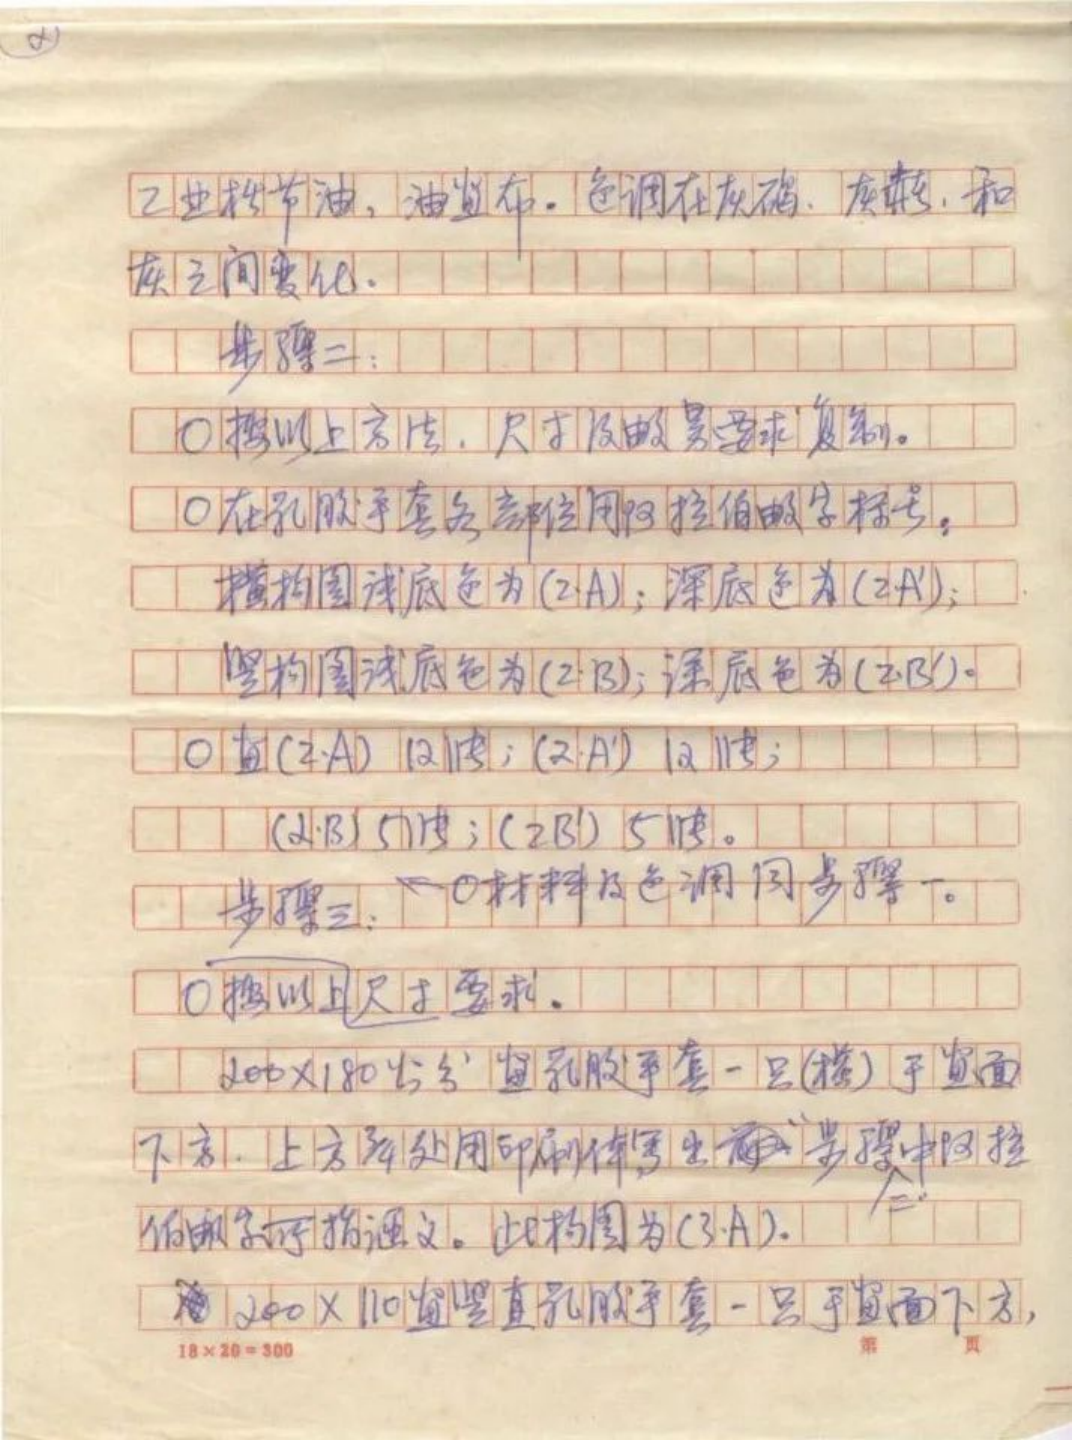 2
工业松节油，油画布。色调在灰褐、灰赭、和
灰之间变化。
步骤二：
○按以上方法、尺寸及数量要求复制。
○在乳胶手套各部位用阿拉伯数字标号。
横构图浅底色为(2·A)；深底色为(2·A')；
竖构图浅底色为(2·B)；深底色为(2·B')。
○画(2·A) 12张；(2·A') 12张；
(2·B) 5张；(2B') 5张。
○材料及色调同步骤一。
步骤三：
○按以上尺寸要求。
200×180公分 画乳胶手套一只(横)于画面
下方．上方 处用印刷体写出“步骤二”中阿拉
伯数字所指 文。此构图为(3·A)。
200×110画竖直乳胶手套一只于画面下方，
18×20=300
第 页